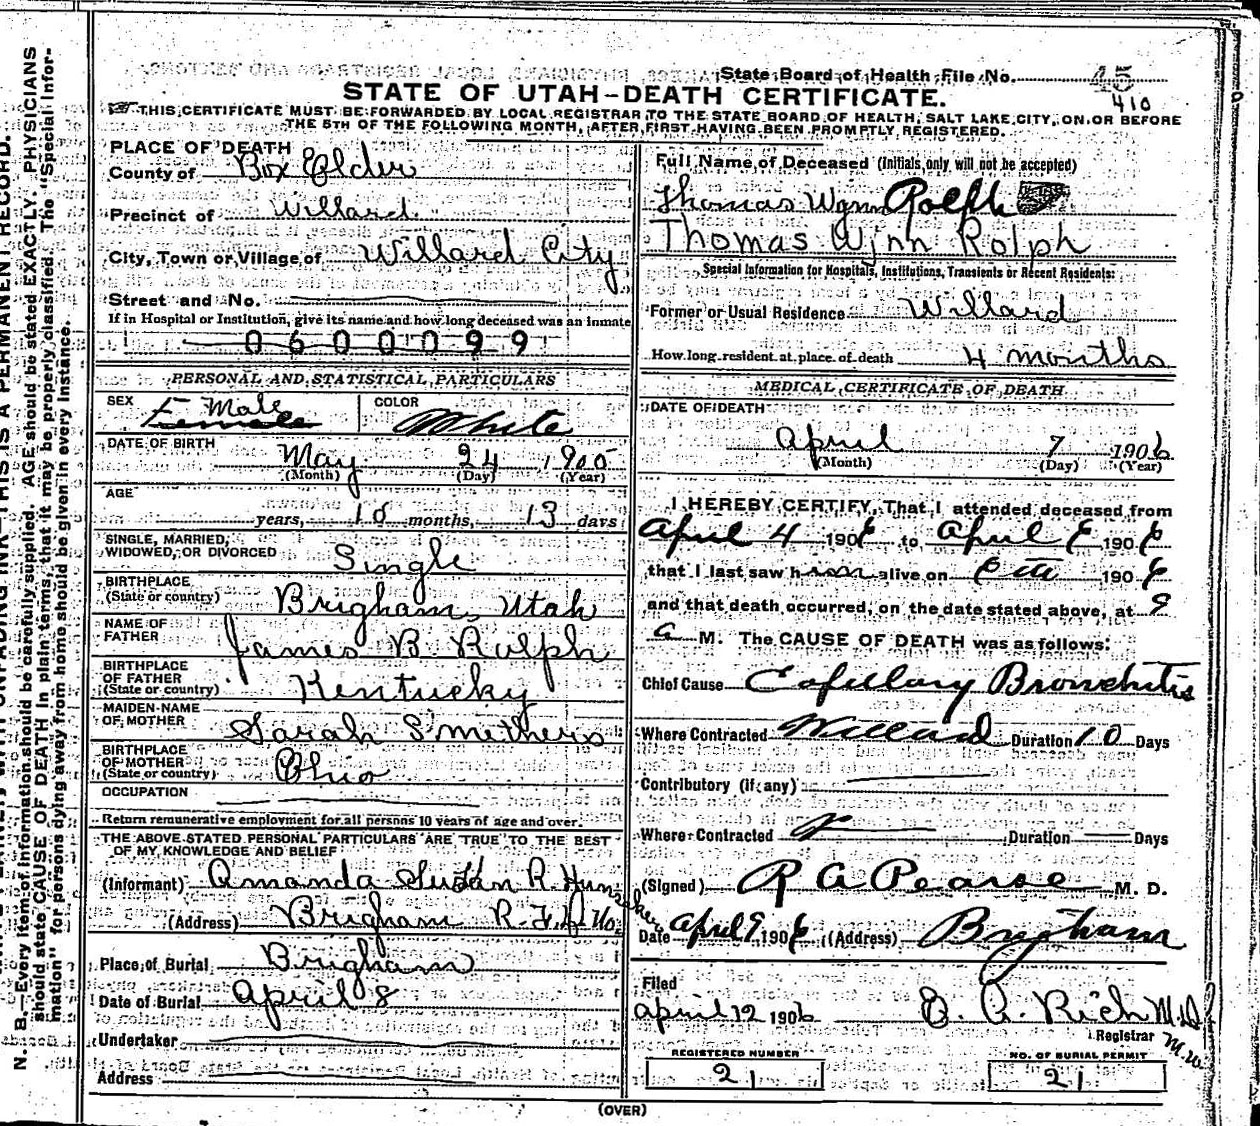 State Board of Health File No. 45
410
STATE OF UTAH-DEATH CERTIFICATE.
THIS CERTIFICATE MUST BE FORWARDED BY LOCAL REGISTRAR TO THE STATE BOARD OF HEALTH, SALT LAKE CITY, ON OR BEFORE
THE 5TH OF THE FOLLOWING MONTH, AFTER FIRST HAVING BEEN PROMPTLY REGISTERED.
N. B.—Every item of information should be carefully supplied. AGE should be stated EXACTLY. PHYSICIANS
should state CAUSE OF DEATH in plain terms, that it may be properly classified. The "Special Infor-
mation" for persons dying away from home should be given in every instance.
PLACE OF DEATH
County of Box Elder
Precinct of Willard
City, Town or Village of Willard City
Street and No.
If in Hospital or Institution, give its name and how long deceased was an inmate
0600099
PERSONAL AND STATISTICAL PARTICULARS
SEX Male
Female
COLOR White
DATE OF BIRTH May 24 1905
(Month) (Day) (Year)
AGE
years, 10 months, 13 days
SINGLE, MARRIED,
WIDOWED, OR DIVORCED Single
BIRTHPLACE
(State or country) Brigham, Utah
NAME OF
FATHER James B. Rolph
BIRTHPLACE
OF FATHER
(State or country) Kentucky
MAIDEN NAME
OF MOTHER Sarah Smethers
BIRTHPLACE
OF MOTHER
(State or country) Ohio
OCCUPATION
Return remunerative employment for all persons 10 years of age and over.
THE ABOVE STATED PERSONAL PARTICULARS ARE TRUE TO THE BEST
OF MY KNOWLEDGE AND BELIEF
(Informant) Amanda Susan R. Hunsaker
(Address) Brigham R.F.D. No.
Place of Burial Brigham
Date of Burial April 8
Undertaker
Address
Full Name of Deceased (Initials only will not be accepted)
Thomas Wynn Rolph
Thomas Wynn Rolph
Special Information for Hospitals, Institutions, Transients or Recent Residents:
Former or Usual Residence Willard
How long resident at place of death 4 months
MEDICAL CERTIFICATE OF DEATH
DATE OF DEATH
April 7 1906
(Month) (Day) (Year)
I HEREBY CERTIFY, That I attended deceased from
April 4 1906 to April 6 1906
that I last saw him alive on 6th 1906
and that death occurred, on the date stated above, at
a M. The CAUSE OF DEATH was as follows:
Chief Cause Capillary Bronchitis
Where Contracted Willard Duration 10 Days
Contributory (if any)
Where Contracted Duration Days
(Signed) R A Pearse M. D.
Date April 9 1906 (Address) Brigham
Filed
April 12 1906 Rich M.D.
Registrar
M.W.
REGISTERED NUMBER
21
NO. OF BURIAL PERMIT
21
(OVER)